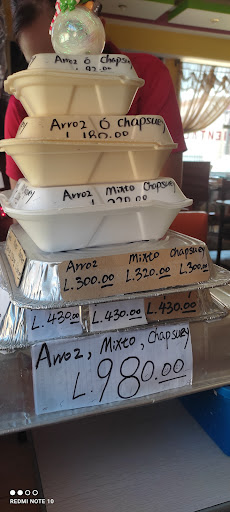 Arroz ó Chapsuey
L.180.00
Arroz Ó Chapsuey
Arroz Mixto Chapsuey
L.220.00
Arroz Mixto Chapsuey
L.300.00 L.320.00 L.300.00
L.430.00 L.430.00 L.430.00
Arroz, Mixto, Chapsuey
L.980.00
REDMI NOTE 10